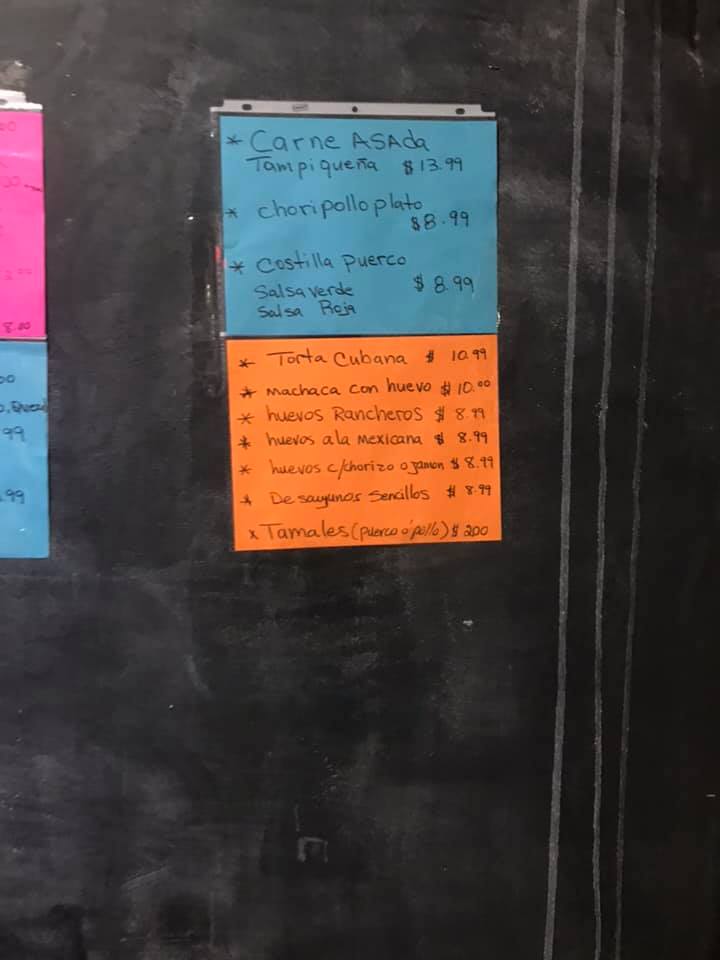 * Carne ASAda
Tampiqueña $13.99
* choripollo plato
$8.99
* Costilla puerco
Salsa verde $8.99
Salsa Roja
* Torta Cubana $ 10.99
* machaca con huevo $10.00
* huevos Rancheros $ 8.99
* huevos a la mexicana $ 8.99
* huevos c/chorizo o jamon $ 8.99
* Desayunos sencillos $ 8.99
x Tamales (puerco ó pollo) $ 200
8.00
99
.99